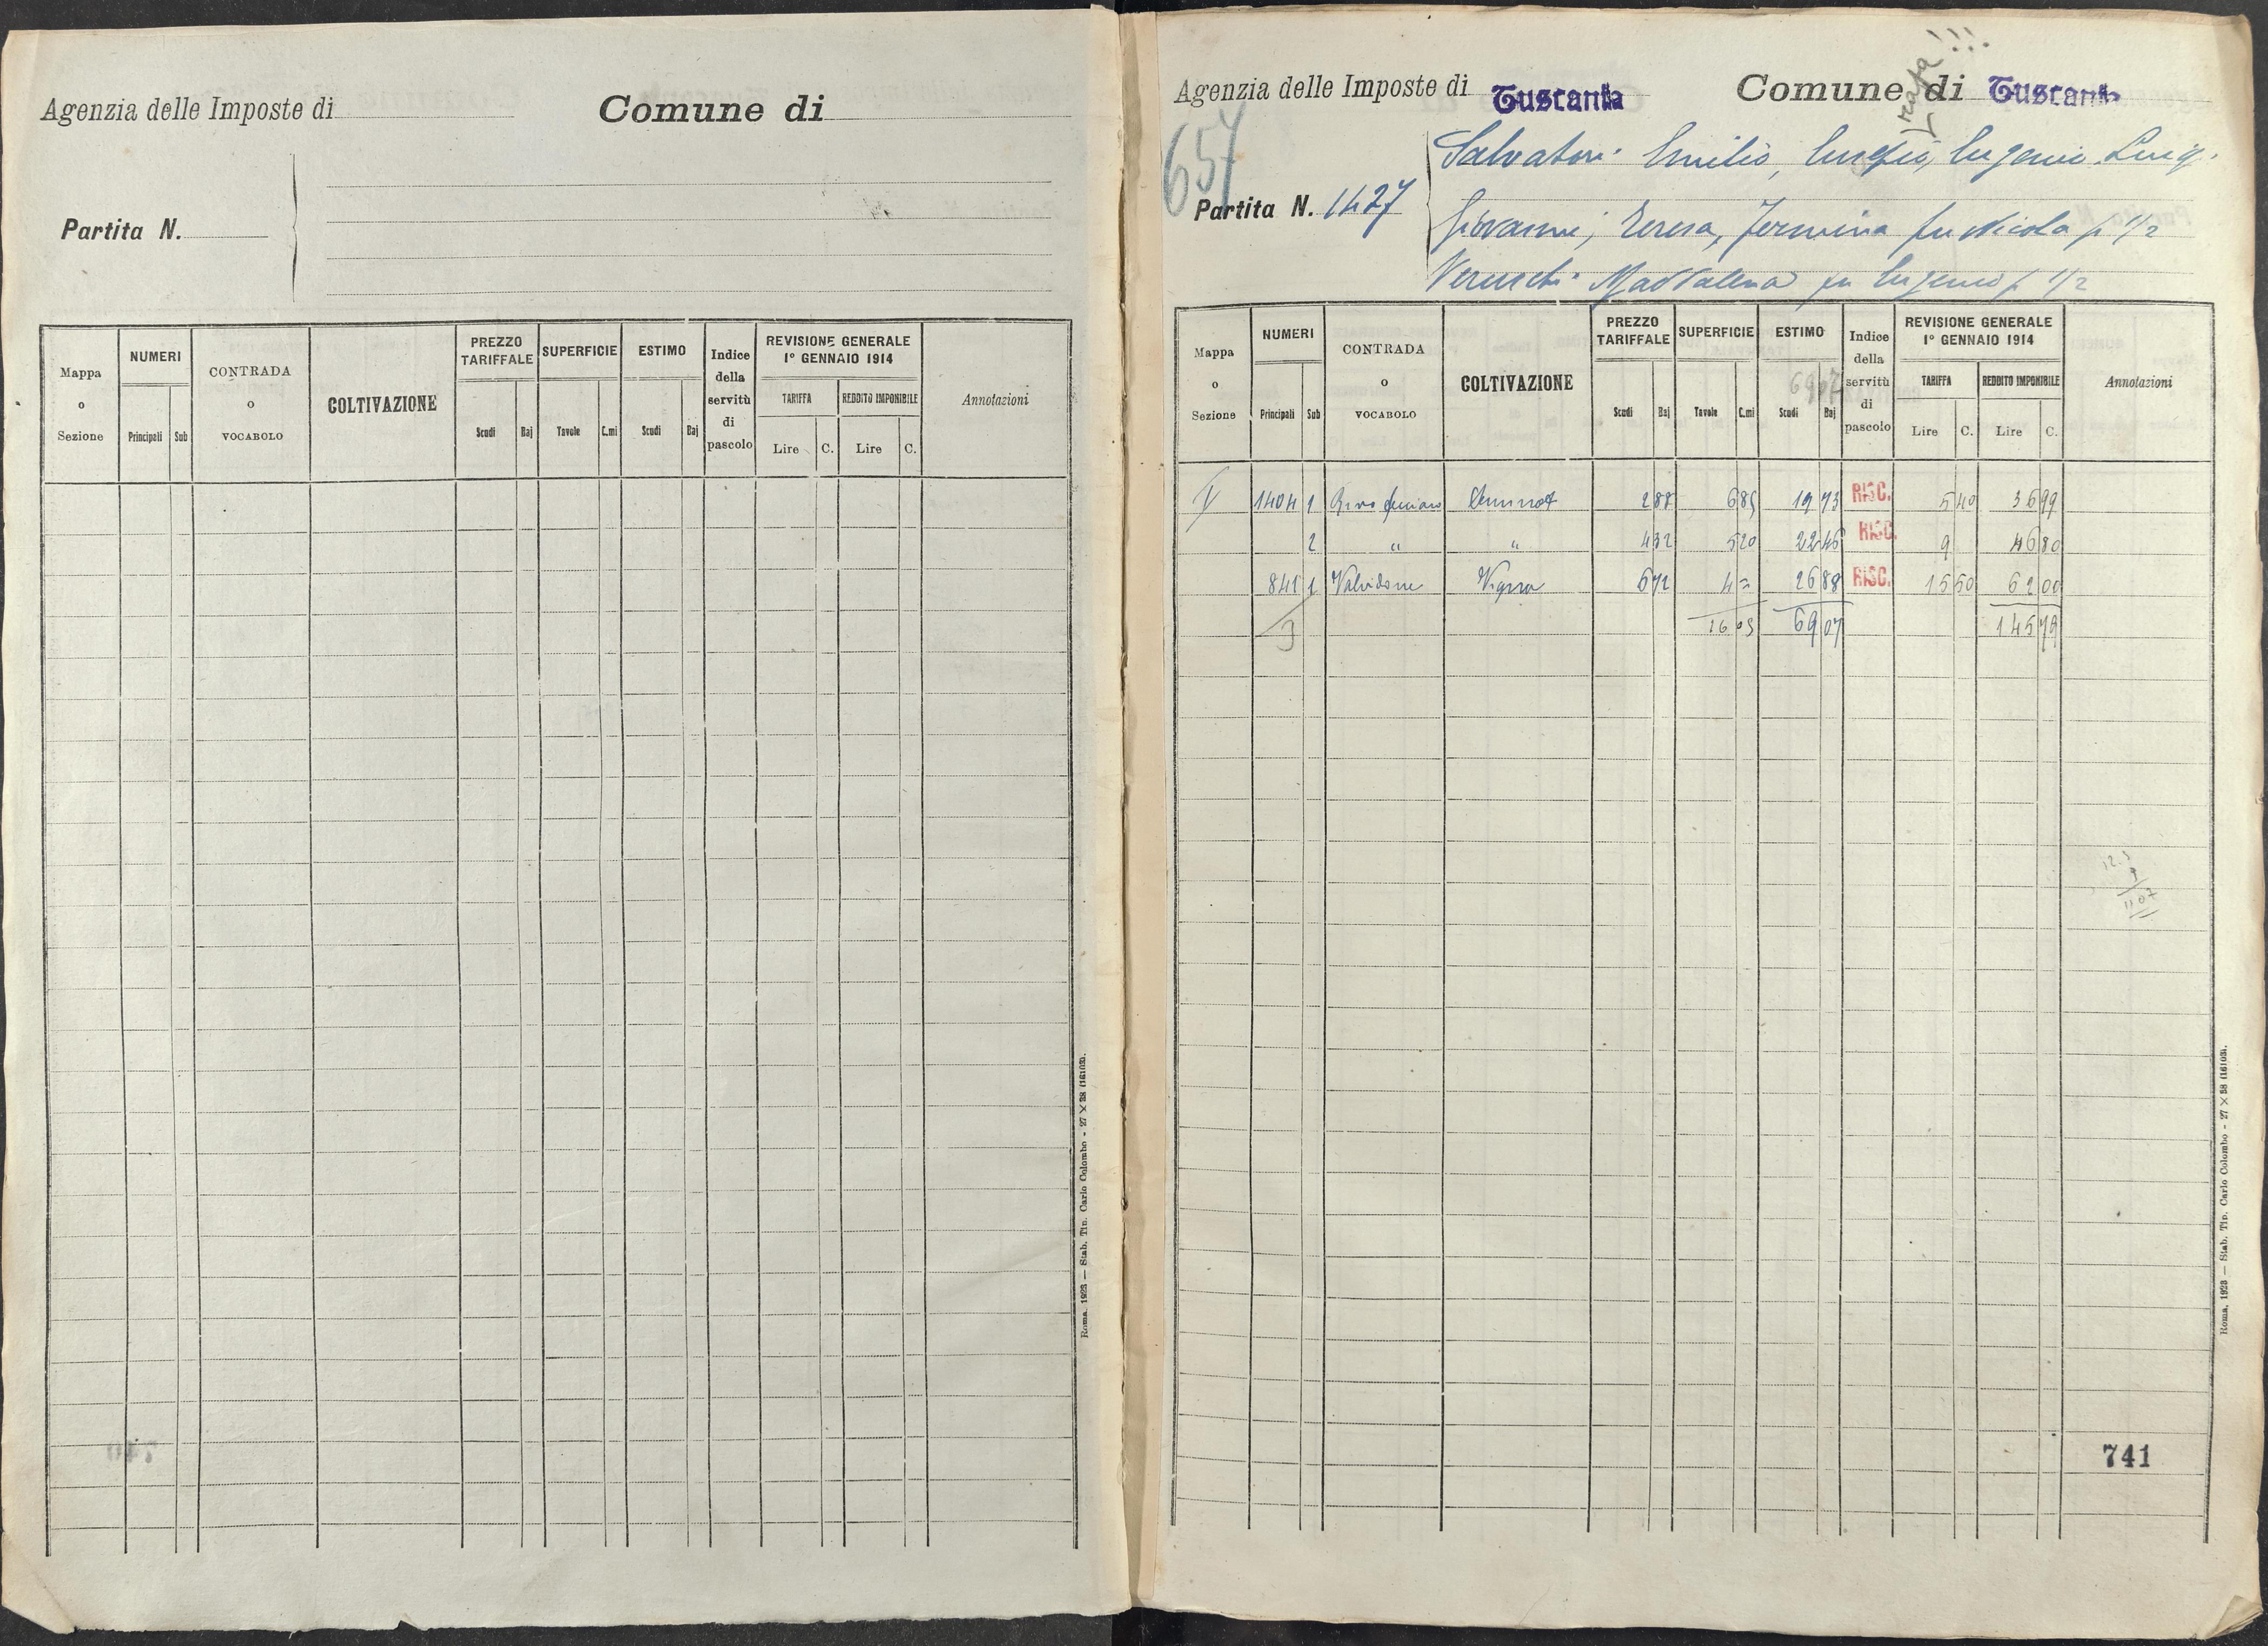 Agenzia delle Imposte di
Comune di
Partita N.
Mappa o Sezione
NUMERI
Principali Sub
CONTRADA o VOCABOLO
COLTIVAZIONE
PREZZO TARIFFALE
Scudi Baj
SUPERFICIE
Tavole C.mi
ESTIMO
Scudi Baj
Indice della servitù di pascolo
REVISIONE GENERALE 1° GENNAIO 1914
TARIFFA
Lire C.
REDDITO IMPONIBILE
Lire C.
Annotazioni
Roma, 1923 — Stab. Tip. Carlo Colombo - 27 × 38 (16103).
Agenzia delle Imposte di Tuscania
Comune di Tuscania
657
Partita N. 1427
Salvatori Emilio, Eugenio Luigi
Giovanni, Teresa, fu Nicola p 1/2
Maddalena fu Eugenio p 1/2
Mappa o Sezione
NUMERI
Principali Sub
CONTRADA o VOCABOLO
COLTIVAZIONE
PREZZO TARIFFALE
Scudi Baj
SUPERFICIE
Tavole C.mi
ESTIMO
6907
Scudi Baj
Indice della servitù di pascolo
REVISIONE GENERALE 1° GENNAIO 1914
TARIFFA
Lire C.
REDDITO IMPONIBILE
Lire C.
Annotazioni
V 1404 1 2 88 6 85 19 73 RISC. 5 40 36 99
2 " " 4 32 5 20 22 46 RISC. 9 46 80
841 1 Valvidone Vigna 6 72 4 = 26 88 RISC. 15 50 62 00
3 16 05 69 07 145 79
741
Roma, 1923 — Stab. Tip. Carlo Colombo - 27 × 38 (16103).